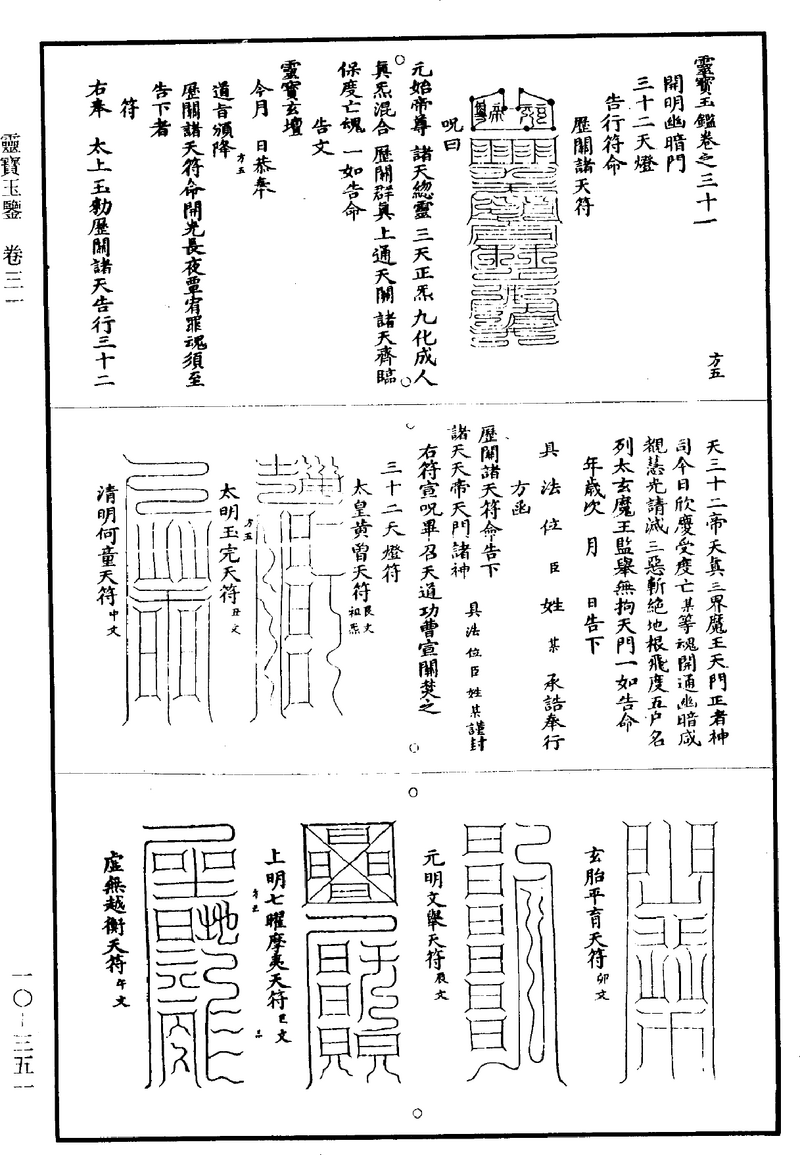 靈寶玉鑑卷之三十一
方五
開明幽暗門
三十二天燈
告行符命
歷關諸天符
呪曰
元始帝尊 諸天總靈 三天正炁 九化成人
真炁混合 歷關群真 上通天關 諸天齊臨
保度亡魂 一如告命
告文
靈寶玄壇
今月 日恭奉
道旨頒降
方五
歷關諸天符命開光長夜覃宥罪魂須至
告下者
符
右奉 太上玉勑歷關諸天告行三十二
天三十二帝天真三界魔王天門正者神
司今日欣慶受度亡某等魂開通幽暗咸
覩慧光請滅三惡斬絕地根飛度五户名
列太玄魔王監舉無拘天門一如告命
年歲次 月 日告下
具法位臣姓某承誥奉行
方函
歷關諸天符命告下
諸天天帝天門諸神 具法位臣姓某謹封
右符宣呪畢召天道功曹宣關焚之
三十二天燈符
太皇黄曾天符艮文祖炁
太明玉完天符丑文
方五
清明何童天符中文
玄胎平育天符卯文
元明文舉天符辰文
上明七曜摩夷天符巳文
虛無越衡天符午文
靈寶玉鑒 卷三一
一〇-三五一